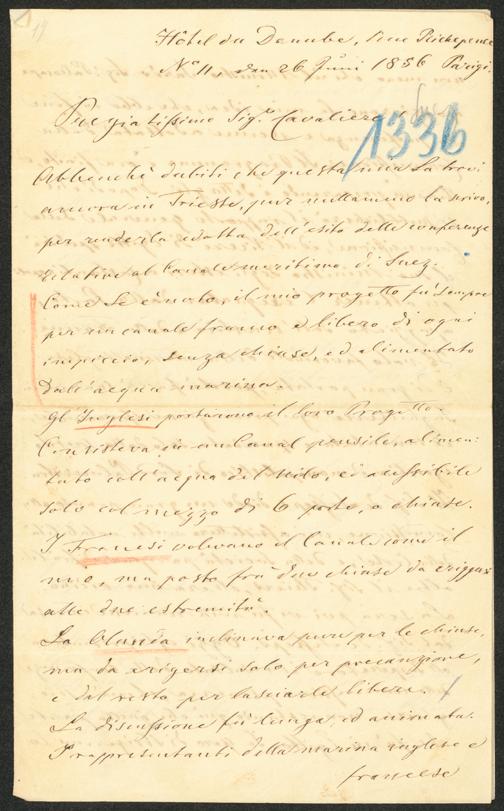 19
Hôtel du Danube, Rue Richepence
N° 11, den 26 Juni 1856 Parigi
Pregiatissimo Sig.r Cavaliere
1336
Abbenchè dubiti che questa mia La trovi
ancora in Trieste, pur nullameno La scrivo,
per renderla edotta dell'esito delle conferenze
relative al Canale marittimo di Suez.
Come Le è noto, il mio progetto fù sempre
per un canale franco e libero di ogni
impiccio, senza chiuse, ed alimentato
dall'acqua marina.
Gl'Inglesi portarono il loro Progetto.
Consisteva in un Canal pensile, alimen-
tato coll'acqua del Nilo, ed accessibile
solo col mezzo di 6 porte, o chiuse.
I Francesi volevano il Canale come il
mio, ma posto frà due chiuse da erigersi
alle due estremità.
La Olanda inclinava pure per le chiuse,
ma da erigersi solo per precauzione,
e del resto per lasciarle libere.
La discussione fù lunga, ed animata.
I rappresentanti della marina inglese e
francese